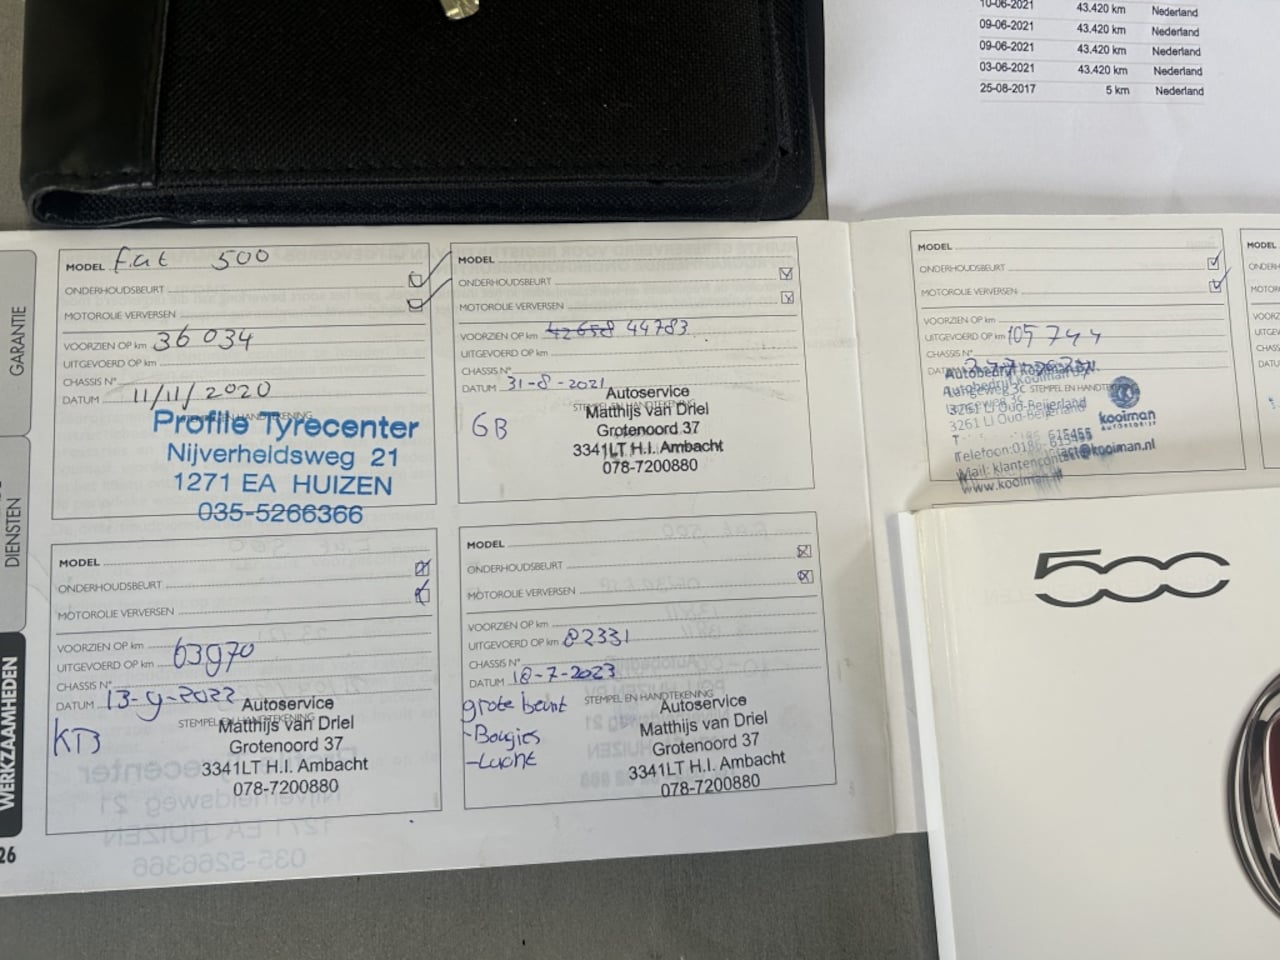 10-06-2021 43.420 km Nederland
09-06-2021 43.420 km Nederland
09-06-2021 43.420 km Nederland
03-06-2021 43.420 km Nederland
25-08-2017 5 km Nederland
GARANTIE
DIENSTEN
WERKZAAMHEDEN
26
MODEL fiat 500
ONDERHOUDSBEURT
MOTOROLIE VERVERSEN
VOORZIEN OP km 36 034
UITGEVOERD OP km
CHASSIS N°
DATUM 11/11/2020
Profile Tyrecenter
Nijverheidsweg 21
1271 EA HUIZEN
035-5266366
MODEL
ONDERHOUDSBEURT
MOTOROLIE VERVERSEN
VOORZIEN OP km 42658 44783
UITGEVOERD OP km
CHASSIS N°
DATUM 31-8-2021
STEMPEL EN HANDTEKENING
GB
Autoservice
Matthijs van Driel
Grotenoord 37
3341LT H.I. Ambacht
078-7200880
MODEL
ONDERHOUDSBEURT
MOTOROLIE VERVERSEN
VOORZIEN OP km
UITGEVOERD OP km 105 744
CHASSIS N°
STEMPEL EN HANDTEKENING
Autobedrijf Kooiman B.V.
Langeweg 3c
3261 LJ Oud-Beijerland
Telefoon: 0186-615455
Mail: klantencontact@kooiman.nl
www.kooiman.nl
kooiman
AUTOBEDRIJF
MODEL
MODEL
ONDERHOUDSBEURT
MOTOROLIE VERVERSEN
VOORZIEN OP km
UITGEVOERD OP km 63970
CHASSIS N°
DATUM 13-9-2022
STEMPEL EN HANDTEKENING
KTB
Autoservice
Matthijs van Driel
Grotenoord 37
3341LT H.I. Ambacht
078-7200880
MODEL
ONDERHOUDSBEURT
MOTOROLIE VERVERSEN
VOORZIEN OP km
UITGEVOERD OP km 82331
CHASSIS N°
DATUM 18-7-2023
STEMPEL EN HANDTEKENING
grote beurt
-Bougies
-Lucht
Autoservice
Matthijs van Driel
Grotenoord 37
3341LT H.I. Ambacht
078-7200880
500